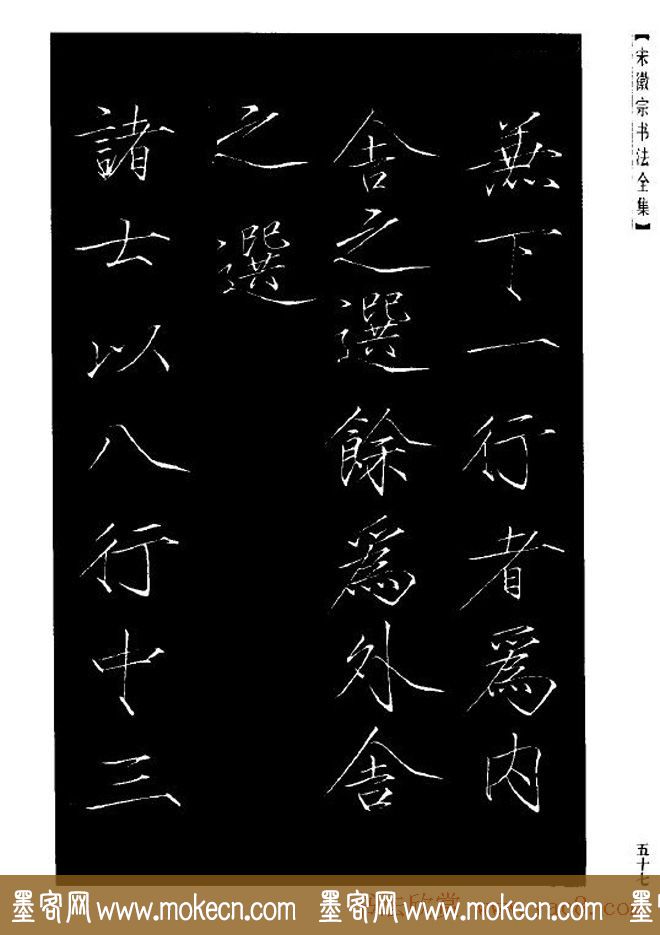 【宋徽宗书法全集】
兼下一行者為内
舍之選餘為外舍
之選
諸士以八行中三
五十七
墨客网 www.mokecn.com 墨客网 www.mokecn.com 墨客